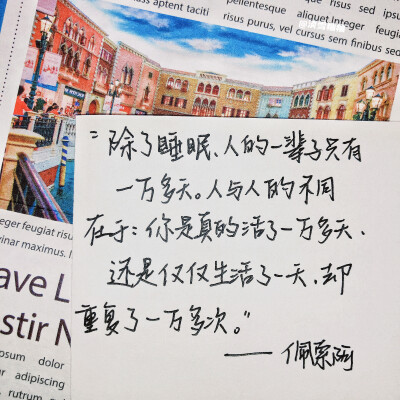 s aptent taciti
pellentesque
risus purus, vel
aliquet Integer
cursus sem finibus sed
risus sed ipsu
feugia
"除了睡眠、人的一辈子只有
一万多天。人与人的不同
在于:你是真的活了一万多天、
还是仅仅生活了一天、却
重复了一万多次。"
——佩索阿
eger feugiat risu
vinar maximus. I
ave L
stir N
psum dolor
r adipiscing